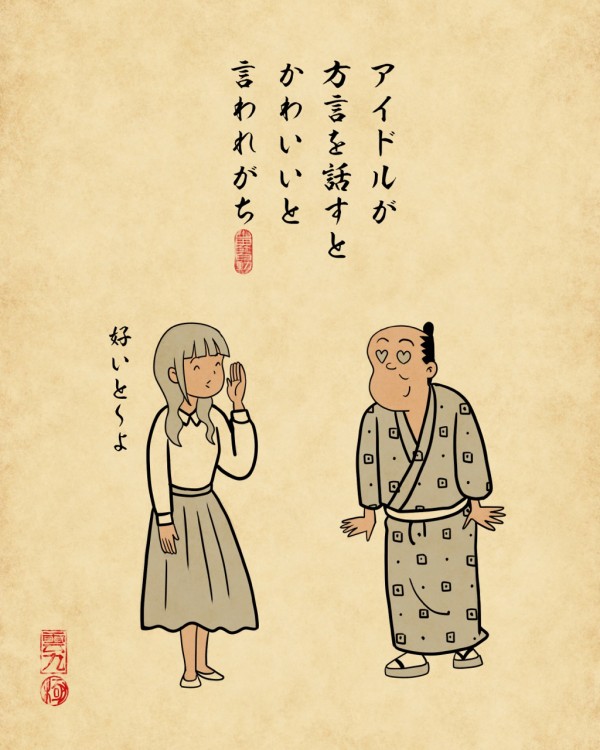 アイドルが
方言を話すと
かわいいと
言われがち
好いと〜よ